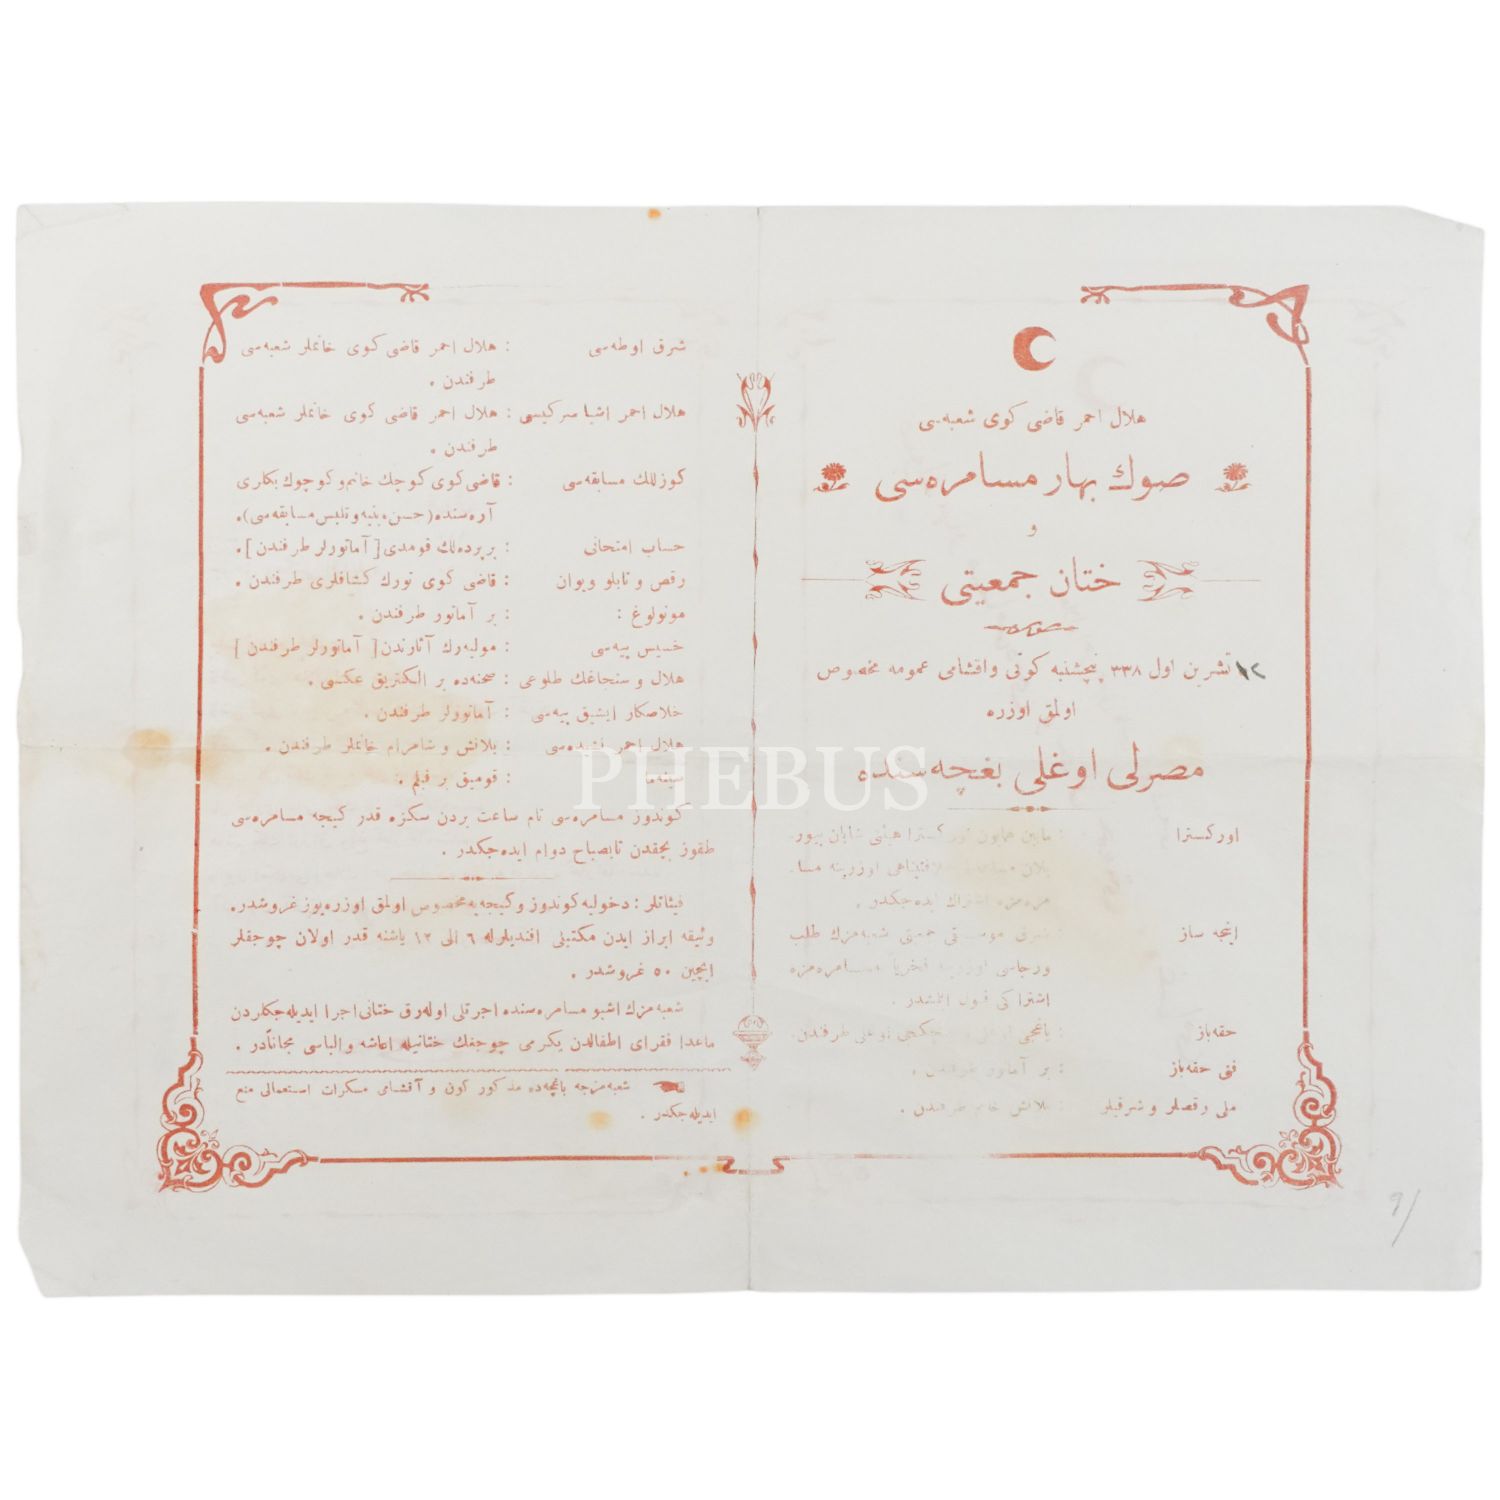 هلال احمر قاضی کوی شعبه‌سی
صوك بهار مسامره‌سی
و
ختان جمعیتی
١٢ تشرین اول ٣٣٨ پنجشنبه کونی واقشامی عمومه مخصوص
اولمق اوزره
مصرلی اوغلی بغچه‌سنده
اورکسترا : مابین همایون اورکسترا هیئتی شایان بیور-
اوزرینه مسا-
مره‌مزه اشتراك ایده‌جکدر .
اینجه ساز : شرق موسیقی جمعیتی شعبه‌مزك طلب
ورجاسی اوزرینه فخریاً مسامره‌مزه
اشتراکی قبول ایتمشدر .
حقه‌باز : طرفندن .
فنی حقه‌باز : بر آماتور طرفندن .
ملی رقصلر و شرقیلر : بلانش خانم طرفندن .
شرق اوطه‌سی : هلال احمر قاضی کوی خانملر شعبه‌سی
طرفندن .
هلال احمر اشیا سرکیسی : هلال احمر قاضی کوی خانملر شعبه‌سی
طرفندن .
کوزللك مسابقه‌سی : قاضی کوی کوچك خانم و کوچوك بکلری
آره‌سنده (حسن ، بنیه و تلبس مسابقه‌سی).
حساب امتحانی : بر پرده‌لك قومدی [ آماتورلر طرفندن ].
رقص و تابلو ویوان : قاضی کوی تورك کشافلری طرفندن .
مونولوغ : بر آماتور طرفندن .
خسیس پیه‌سی : مولیه‌رك آثارندن [ آماتورلر طرفندن ]
هلال و سنجاغك طلوعی : صحنه‌ده بر الکتریق عکسی .
خلاصکار ایشیق پیه‌سی : آماتورلر طرفندن .
هلال احمر نشیده‌سی : بلانش و شاهرام خانملر طرفندن .
سینه‌ما : قومیق بر فیلم .
کوندوز مسامره‌سی تام ساعت بردن سکزه قدر کیجه مسامره‌سی
طقوز بچقدن تابصباح دوام ایده‌جکدر .
فیئاتلر : دخولیه کوندوز و کیجه‌یه مخصوص اولمق اوزره یوز غروشدر.
وثیقه ابراز ایدن مکتبلی افندیلرله ٦ الی ١٢ یاشنه قدر اولان چوجقلر
ایچین ٥٠ غروشدر .
شعبه‌مزك اشبو مسامره‌سنده اجرتلی اوله‌رق ختانی اجرا ایدیله‌جکلردن
ماعدا فقرای اطفالدن یکرمی چوجغك ختانیله اعاشه و الباسی مجاناًدر .
شعبه‌مزجه باغچه‌ده مذکور کون و آقشامی مسکرات استعمالی منع
ایدیله‌جکدر .
PHEBUS
9/